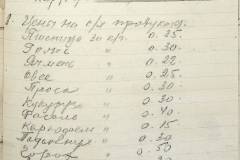 1. Цены на с/х продукты.
Пшеница за кг. 0.25.
Рожь " 0.30
Ячмень " 0.22
Овес " 0.25
Проса " 0.30
Кукуруза " 0.30
Фасоль " 0.40
Картофель " 0.15
" 0.30
Горох " 0.50